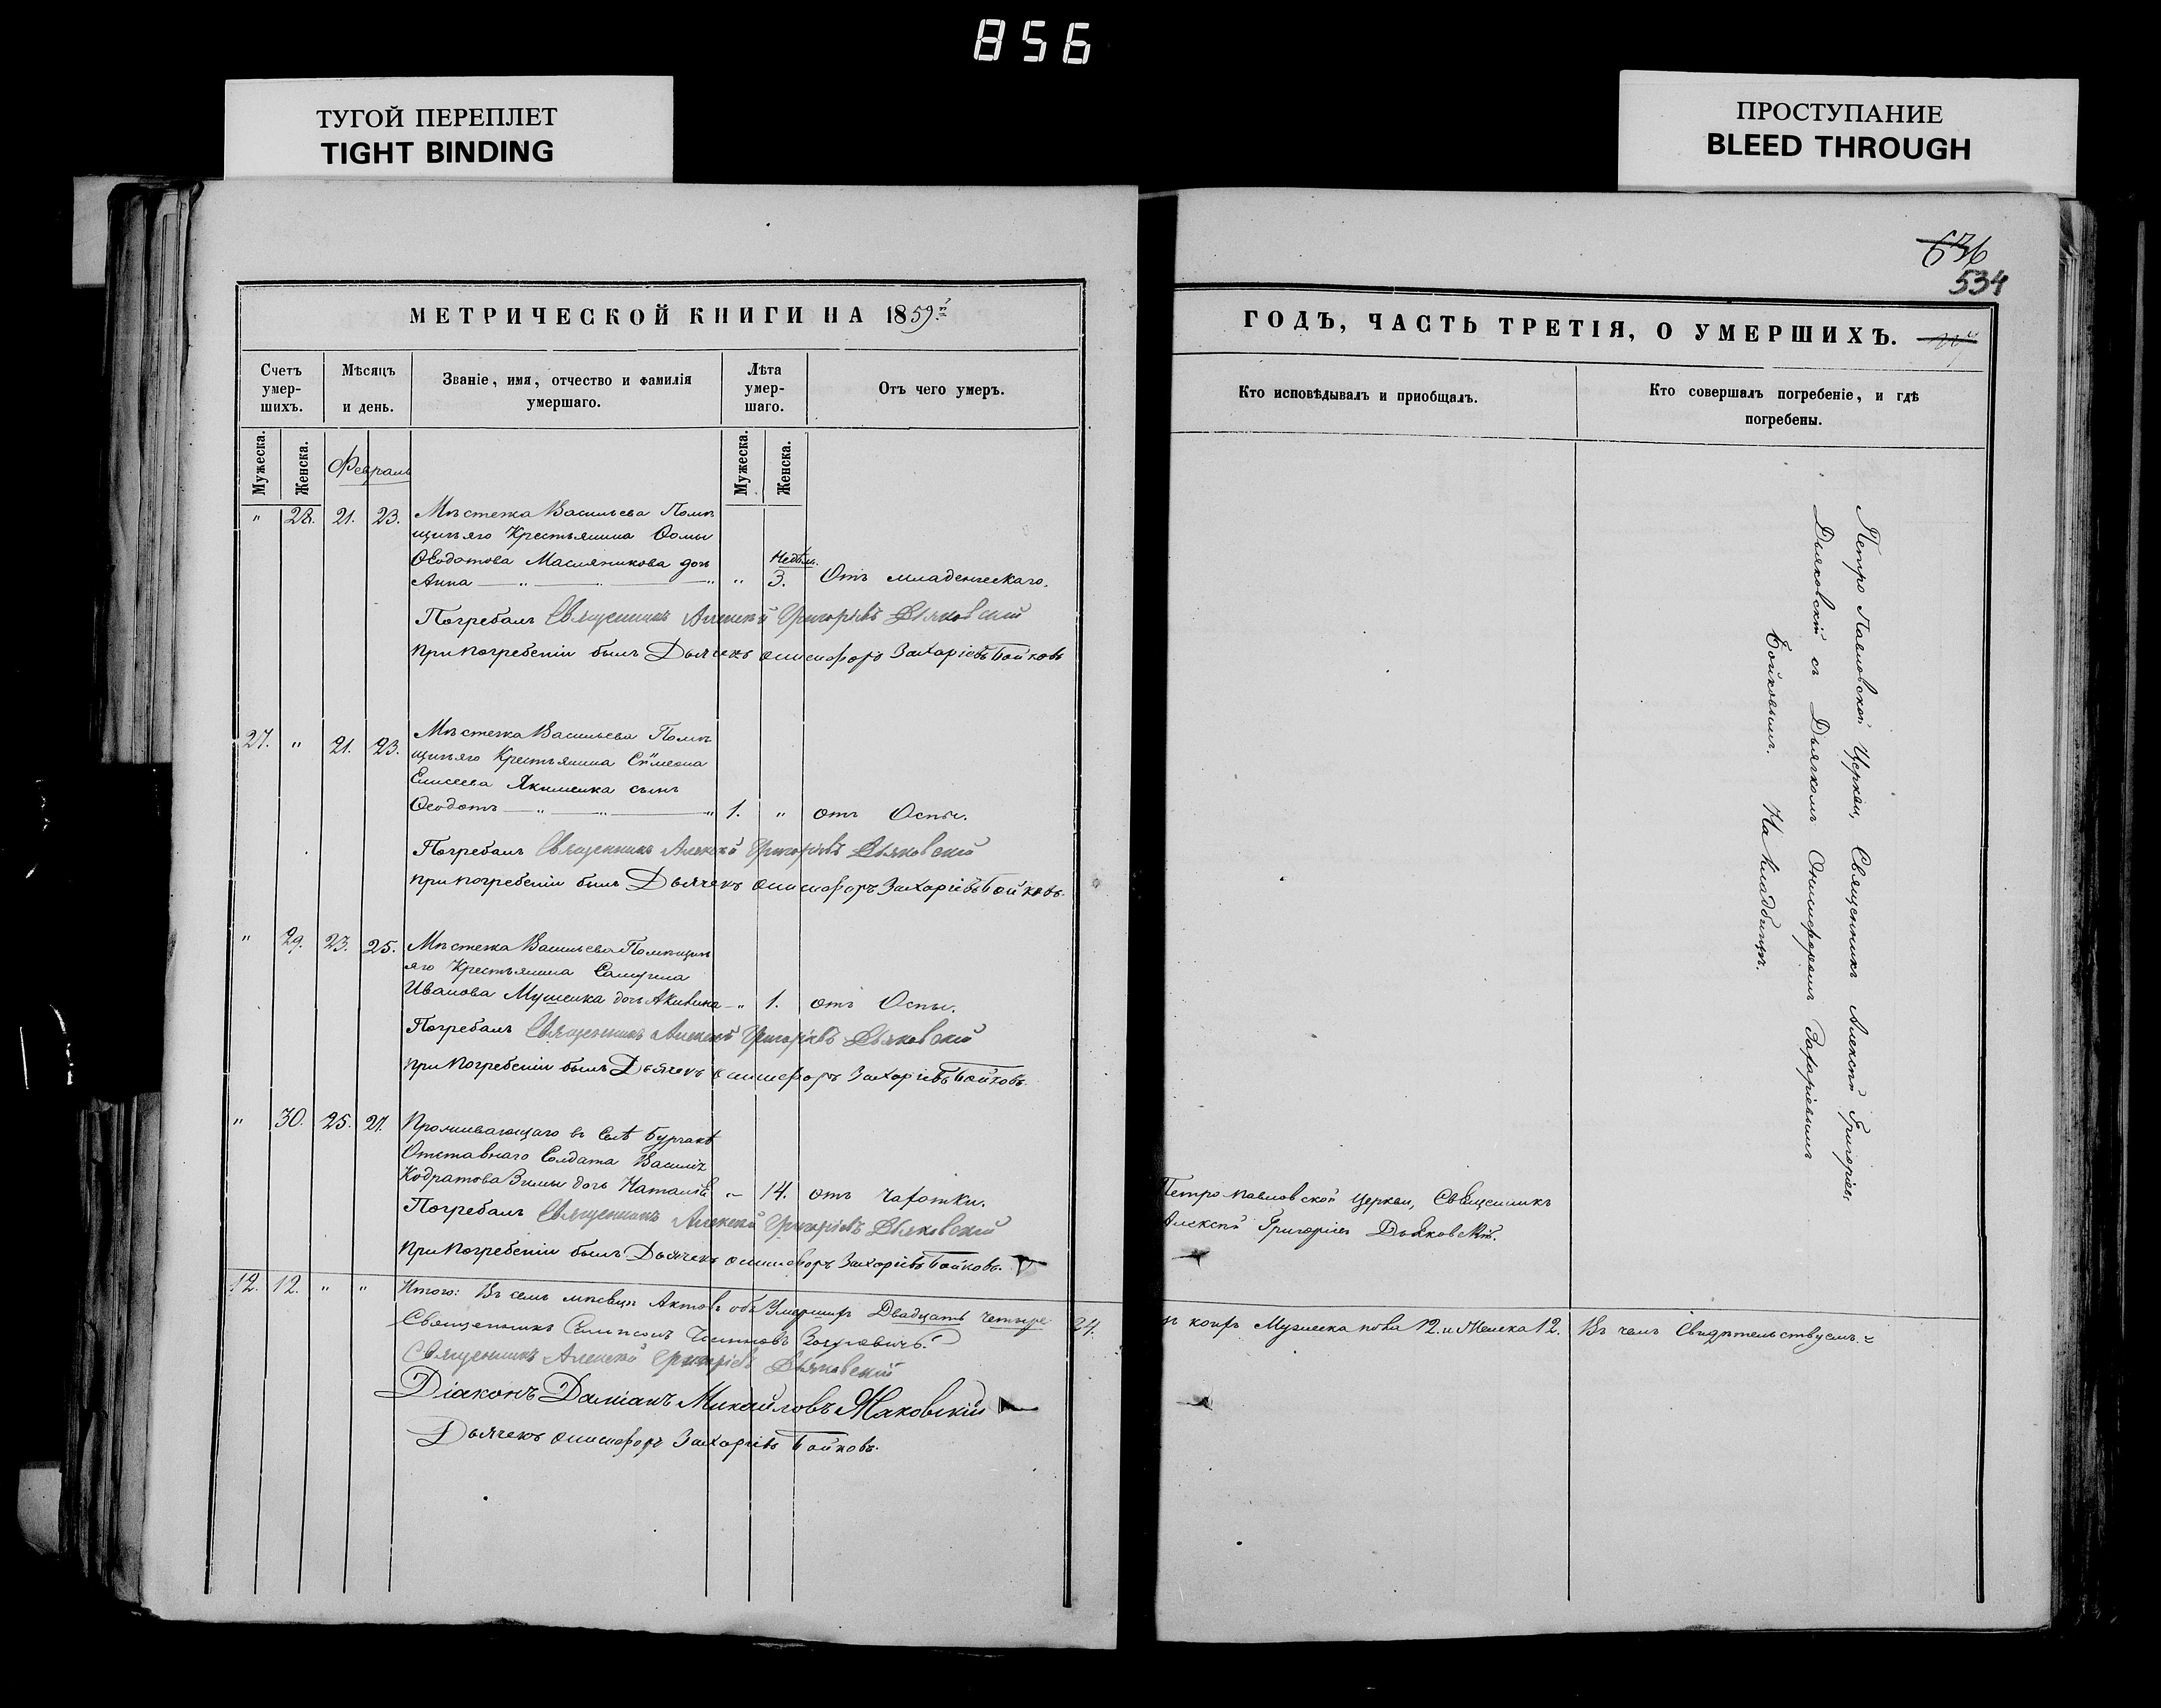 856
ТУГОЙ ПЕРЕПЛЕТ
TIGHT BINDING
ПРОСТУПАНИЕ
BLEED THROUGH
636
534
МЕТРИЧЕСКОЙ КНИГИ НА 1859й
ГОДЪ, ЧАСТЬ ТРЕТІЯ, О УМЕРШИХЪ.
Счетъ умер-шихъ.
Мѣсяцъ и день.
Званіе, имя, отчество и фамилія умершаго.
Лѣта умер-шаго.
Отъ чего умеръ.
Кто исповѣдывалъ и пріобщалъ.
Кто совершалъ погребеніе, и гдѣ погребены.
Мужеска.
Женска.
Февраль
Мужеска.
Женска.
" 28. 21. 23. Мѣстечка Васильева Помѣ
щичьяго Крестьянина Ѳомы
Ѳеодотова Масляникова дочь
Недѣль.
Анна " " " " 3. Отъ младенческаго.
Погребалъ Священникъ Алексѣй Григоріевъ Дьяковскій
При погребеніи былъ Дьячекъ Онисифоръ Захаріевъ Бойковъ
27. " 21. 23. Мѣстечка Васильева Помѣ
щичьяго Крестьянина Симеона
Елисеева Якименка сынъ
Ѳеодотъ " " " 1. " отъ Оспы.
Погребалъ Священникъ Алексѣй Григоріевъ Дьяковскій
При погребеніи былъ Дьячекъ Онисифоръ Захаріевъ Бойковъ.
" 29. 23. 25. Мѣстечка Васильева Помѣщичь
яго Крестьянина Самуила
Иванова дочь Акилина " 1. отъ Оспы.
Погребалъ Священникъ Алексѣй Григоріевъ Дьяковскій
При Погребеніи былъ Дьячекъ Онисифоръ Захаріевъ Бойковъ.
" 30. 25. 27. Проживающаго въ Селѣ
Отставнаго Солдата Василія
Кодратова Зимы дочь Наталія " 14. отъ чахотки.
Погребалъ Священникъ Алексѣй Григоріевъ Дьяковскій
При Погребеніи былъ Дьячекъ Онисифоръ Захаріевъ Бойковъ.
12. 12. " " Итого: Въ семъ мѣсяцѣ Актовъ объ Умершихъ Двадцать четыре 24.
Священникъ
Священникъ Алексѣй Григоріевъ Дьяковскій
Діаконъ Даміанъ Михайловъ Маковскій
Дьячекъ Онисифоръ Захаріевъ Бойковъ.
Петро Павловской Церкви, Священникъ
Алексѣй Григоріевъ Дьяковскій.
Мужеска пола 12. и Женска 12. Въ чемъ Свидѣтельствуемъ.
Петро Павловской Церкви, Священникъ Алексѣй Григоріевъ
Дьяковскій съ Дьячкомъ Онисифоромъ Захаріевымъ
Бойковымъ. На Кладбищѣ.